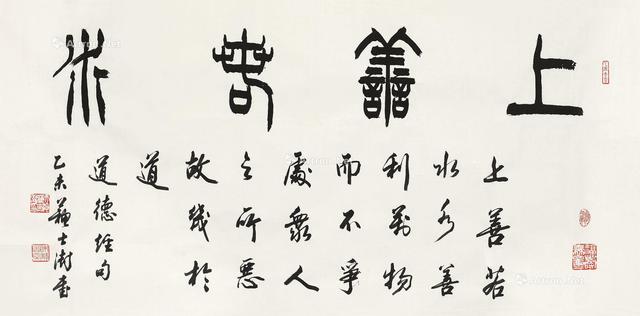 上善若水
上善若
水水善
利萬物
而不爭
處衆人
之所惡
故幾於
道
道德經句
乙未蘇士澍書
Artron.Net